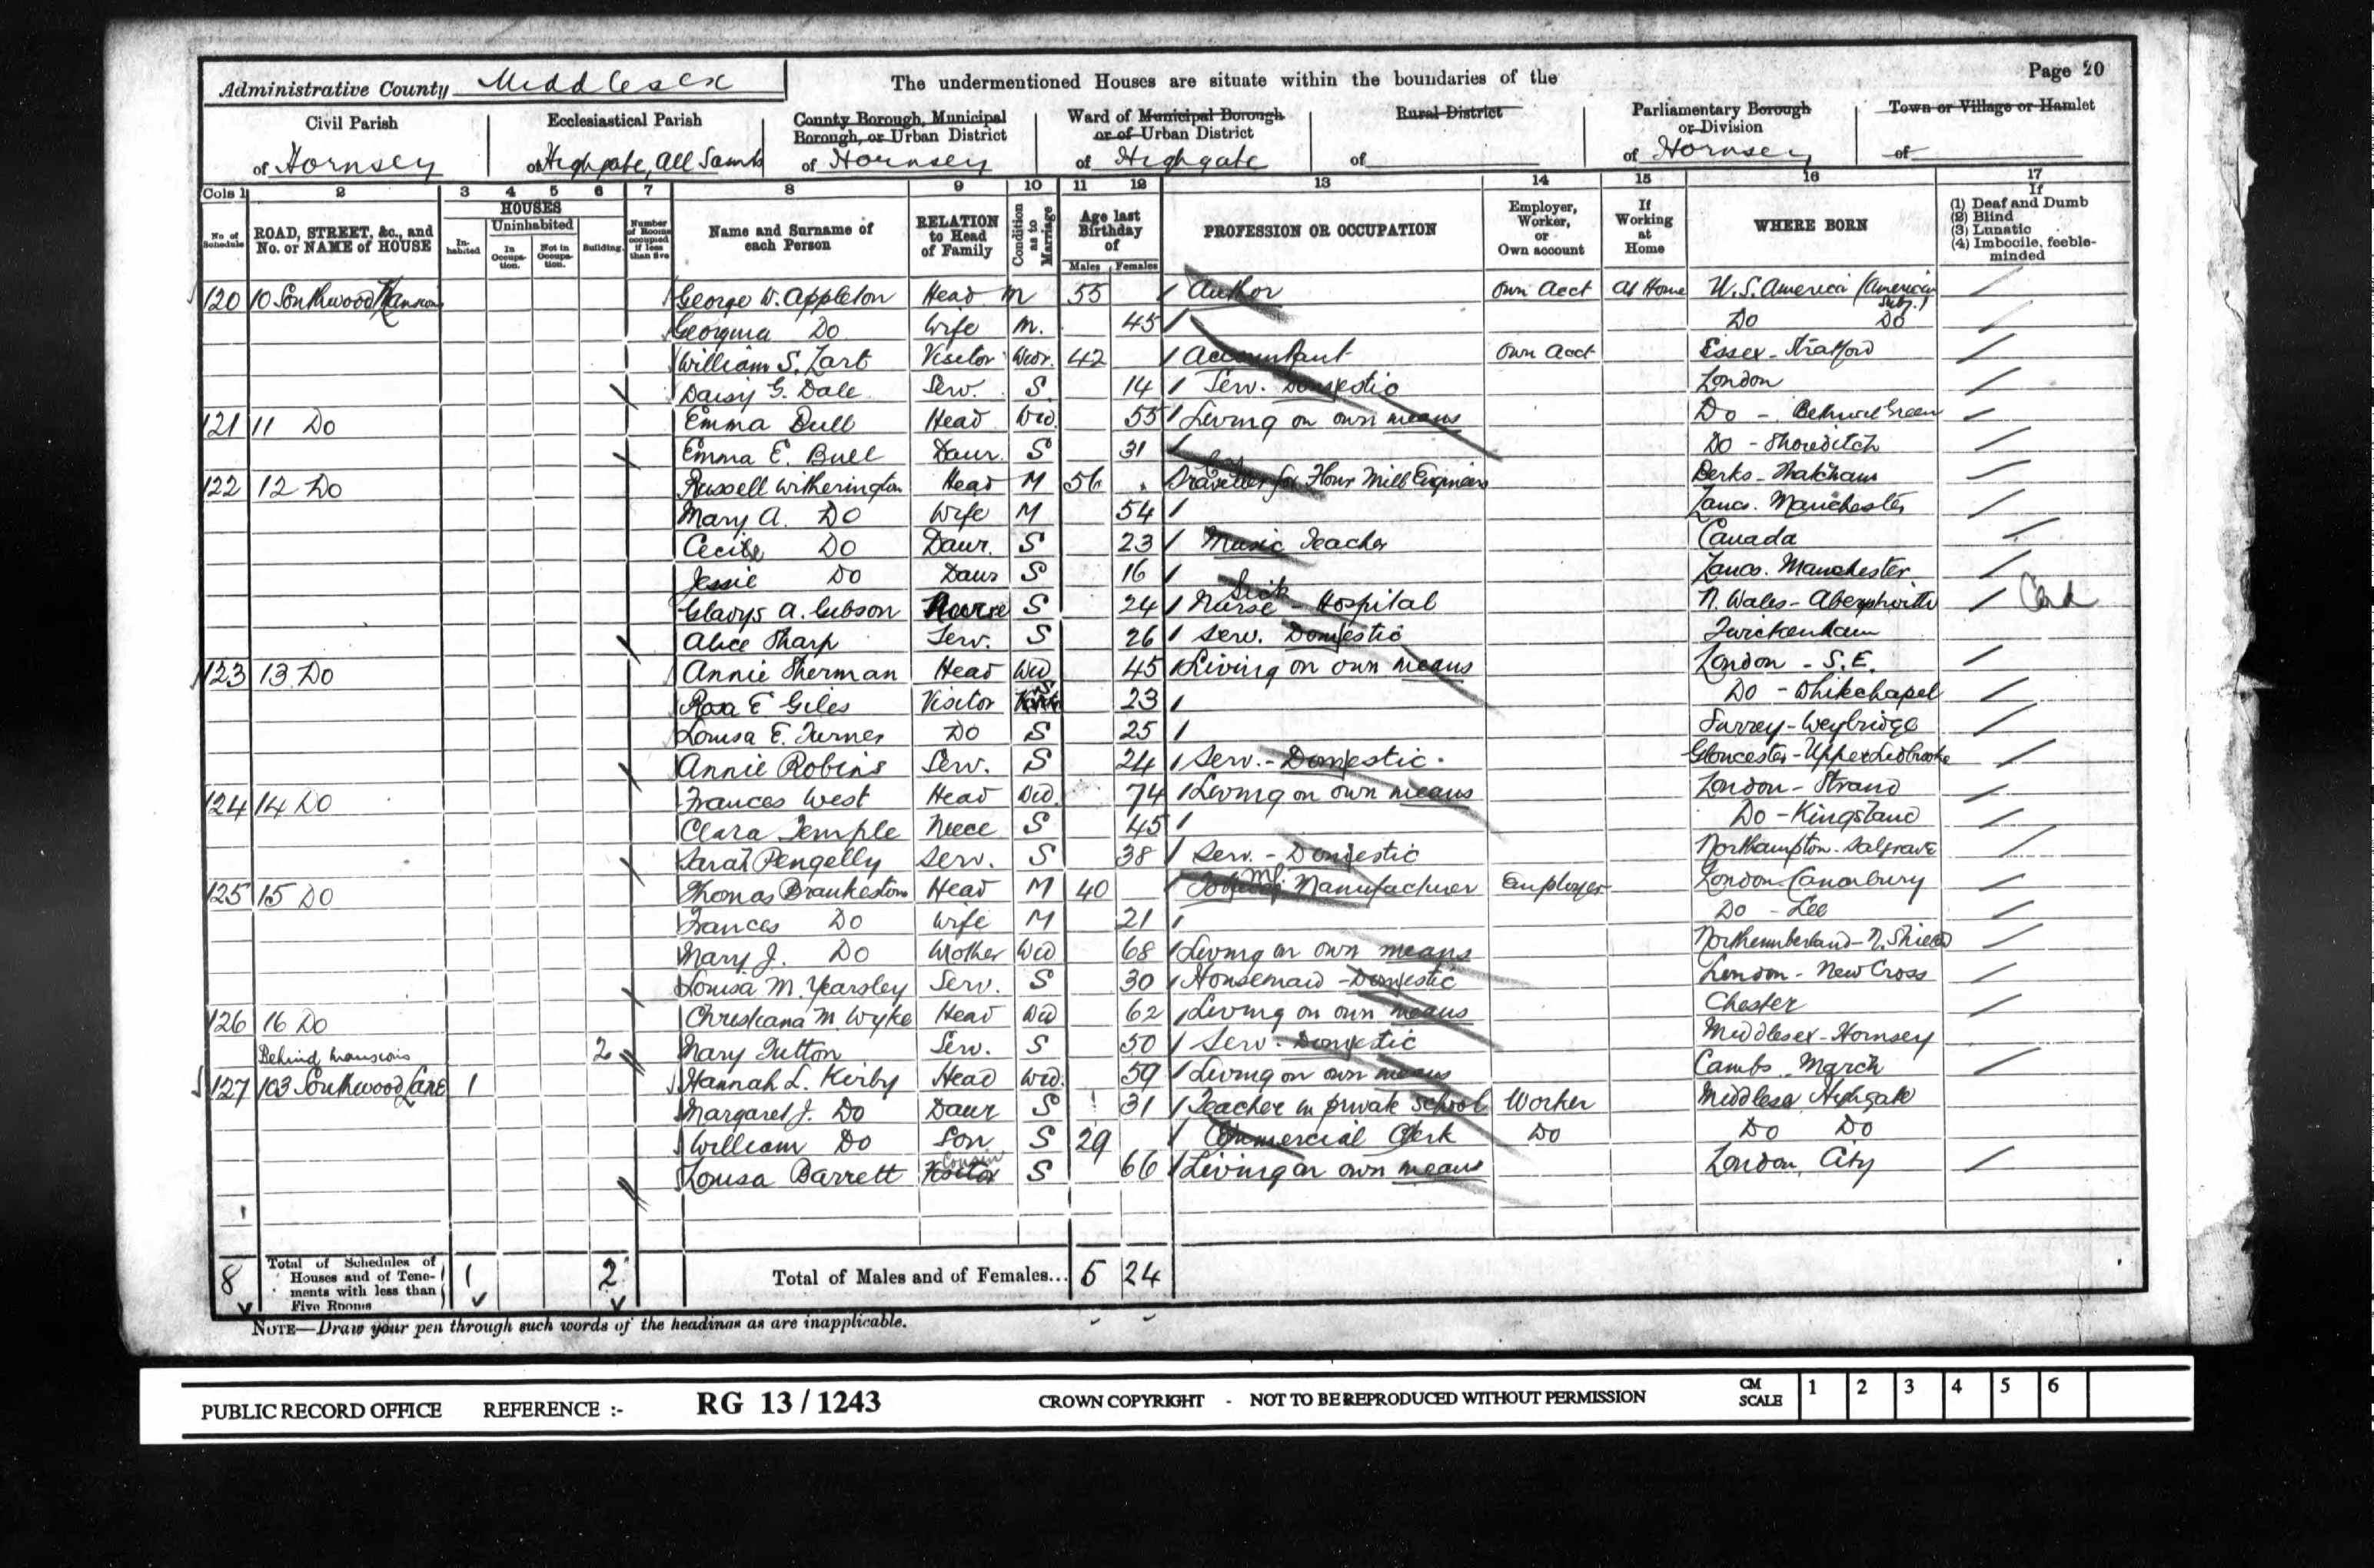 Administrative County Middlesex
The undermentioned Houses are situate within the boundaries of the
Page 20
Civil Parish
of Hornsey
Ecclesiastical Parish
of Highgate, All Saints
County Borough, Municipal
Borough, or Urban District
of Hornsey
Ward of Municipal Borough
or of Urban District
of Highgate
Rural District
of
Parliamentary Borough
or Division
of Hornsey
Town or Village or Hamlet
of
Cols 1 2 3 4 5 6 7 8 9 10 11 12 13 14 15 16 17
No. of Schedule
ROAD, STREET, &c., and No. or NAME of HOUSE
HOUSES
Inhabited
Uninhabited
In Occupation.
Not in Occupation.
Building.
Number of Rooms occupied if less than five
Name and Surname of each Person
RELATION to Head of Family
Condition as to Marriage
Age last Birthday of
Males Females
PROFESSION OR OCCUPATION
Employer, Worker, or Own account
If Working at Home
WHERE BORN
If
(1) Deaf and Dumb
(2) Blind
(3) Lunatic
(4) Imbecile, feeble-minded
120 10 Southwood Mansions George W. Appleton Head M 55 Author Own Acct At Home U.S. America (American Subj.)
Georgina Do Wife M. 45 Do Do
William S. Visitor Wdr. 42 Accountant Own Acct Essex - Stratford
Daisy G. Dale Serv. S. 14 Serv. Domestic London
121 11 Do Emma Bull Head Wid. 55 Living on own means Do - Bethnal Green
Emma E. Bull Daur. S 31 Do - Shoreditch
122 12 Do Russell Witherington Head M 56 Traveller for Flour Mill Engineers Berks - Thatcham
Mary A. Do Wife M 54 Lancs. Manchester
Cecile Do Daur. S 23 Music Teacher Canada
Jessie Do Daur S 16 Lancs. Manchester
Gladys A. Gibson Nurse S 24 Sick Nurse - Hospital N. Wales - Aberystwith Card
Alice Sharp Serv. S 26 Serv. Domestic Twickenham
123 13 Do Annie Sherman Head Wid 45 Living on own means London - S.E.
Rosa E Giles Visitor S 23 Do - Whitechapel
Louisa E. Turner Do S 25 Surrey - Weybridge
Annie Robins Serv. S 24 Serv. - Domestic. Gloucester - Upper Lidbrooke
124 14 Do Frances West Head Wid. 74 Living on own means London - Strand
Clara Temple Neece S 45 Do - Kingsland
Sarah Pengelly Serv. S 38 Serv. - Domestic Northampton - Salgrave
125 15 Do Thomas Brankston Head M 40 Manufacturer Employer London Canonbury
Frances Do Wife M 21 Do - Lee
Mary J. Do Mother Wid 68 Living on own means Northumberland - N. Shield
Louisa M. Yearsley Serv. S 30 Housemaid - Domestic London - New Cross
126 16 Do Christiana M. Wyke Head Wid 62 Living on own means Chester
Behind Mansions 2 Mary Tutton Serv. S 50 Serv. Domestic Middlesex - Hornsey
127 103 Southwood Lane 1 Hannah L. Kirby Head Wid. 59 Living on own means Cambs. March
Margaret J. Do Daur S 31 Teacher in private School Worker Middlesex Highgate
William Do Son S 29 Commercial Clerk Do Do Do
Louisa Barrett Visitor Cousin S 66 Living on own means London, City
8 Total of Schedules of Houses and of Tenements with less than Five Rooms 1 2 Total of Males and of Females... 5 24
NOTE—Draw your pen through such words of the headings as are inapplicable.
PUBLIC RECORD OFFICE REFERENCE :- RG 13 / 1243 CROWN COPYRIGHT - NOT TO BE REPRODUCED WITHOUT PERMISSION CM SCALE 1 2 3 4 5 6